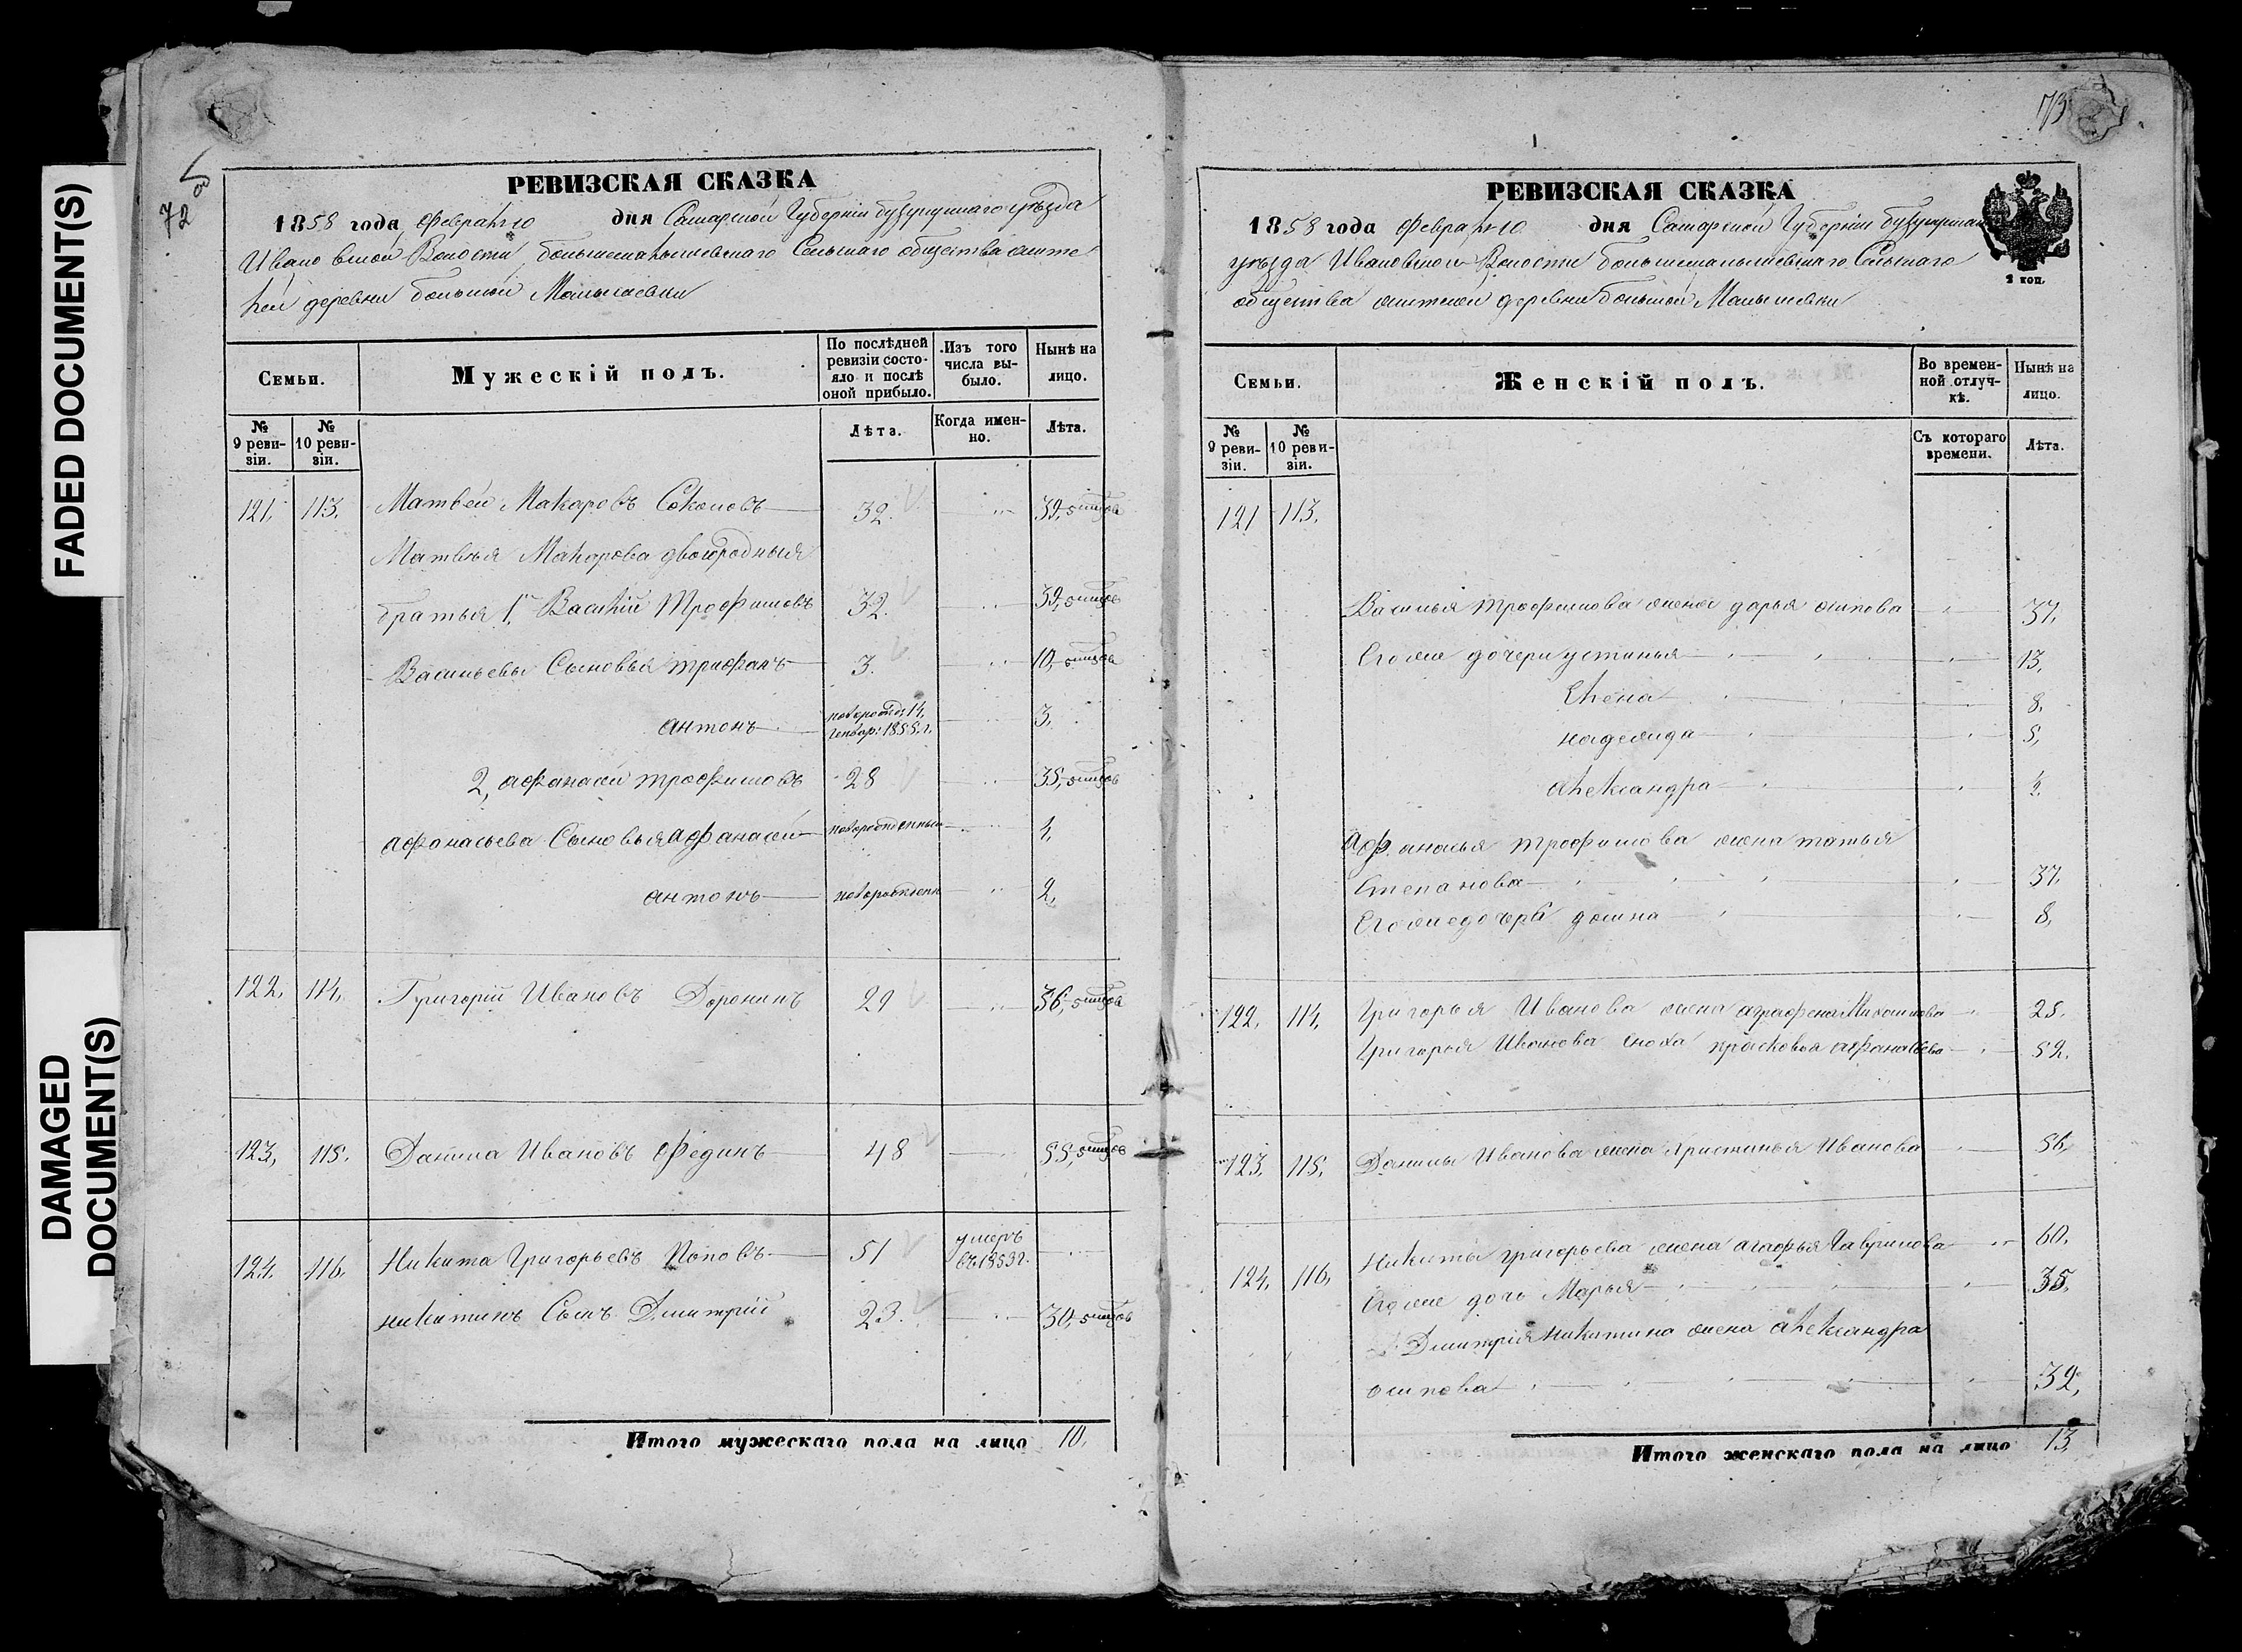 FADED DOCUMENT(S)
DAMAGED
DOCUMENT(S)
72 об
РЕВИЗСКАЯ СКАЗКА
1858 года февраля 10 дня Самарской Губернiи бузулуцкаго уѣзда
Ивановской Волости, большемалышевскаго Сельскаго общества
деревни большой Малышевки
Семьи.
Мужескiй полъ.
По послѣдней
ревизiи состо-
яло и послѣ
оной прибыло.
Изъ того
числа вы-
было.
Нынѣ на
лицо.
№
9 реви-
зiи.
№
10 реви-
зiи.
Лѣта.
Когда имен-
но.
Лѣта.
121. 113. Матвей Макаровъ Соколовъ 32. 39,
Матвѣя Макарова двоюродныя
братья 1. Василiй Трофимовъ 32. 39,
Васильевы Сыновья трифанъ 3. 10,
антонъ новорожд: 14, генвар: 1855 г. 3.
2, афанасiй трофимовъ 28 35,
афонасьева Сыновья афанасiй новорожденный 4,
антонъ новорожденн 2,
122. 114. Григорiй Ивановъ Доронинъ 29 36,
123, 115. Данила Ивановъ Фединъ 48 55,
124. 116. Никита Григорьевъ Поповъ 51 умеръ въ 1853 г.
никитинъ Сынъ Дмитрiй 23. 30,
Итого мужескаго пола на лицо 10.
73
РЕВИЗСКАЯ СКАЗКА
1858 года февраля 10 дня Самарской Губернiи
уѣзда Ивановской Волости большемалышевскаго Сельскаго
общества деревни большой Малышевки
2 коп.
Семьи.
Женскiй полъ.
Во времен-
ной отлуч-
кѣ.
Нынѣ на
лицо.
№
9 реви-
зiи.
№
10 реви-
зiи.
Съ котораго
времени.
Лѣта.
121 113.
Василья трофимова жена дарья осипова 37.
Его же дочери устинья 13,
Елена 8.
надежида 5,
александра 2.
Афанасья трофимова жена татья
Степанова 37.
Его же дочерь домна 8,
122. 114, Григорья Иванова жена аграфена 28.
Григорья Иванова сноха прасковья афанасьева 52.
123. 115. Данилы Иванова жена Христинья Иванова 56,
124. 116, Никиты григорьева жена агафья Гаврилова 60.
Его же дочь Марья 35.
Дмитрiя никитина жена александра
осипова 32,
Итого женскаго пола на лицо 13.